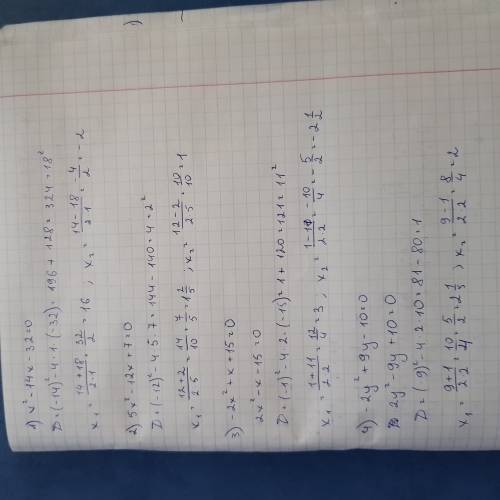 1) x² - 14x - 32 = 0
D = (-14)² - 4 · 1 · (-32) = 196 + 128 = 324 = 18²
x₁ = (14 + 18)/(2·1) = 32/2 = 16 ; x₂ = (14 - 18)/(2·1) = -4/2 = -2
2) 5x² - 12x + 7 = 0
D = (-12)² - 4 · 5 · 7 = 144 - 140 = 4 = 2²
x₁ = (12 + 2)/(2·5) = 14/10 = 7/5 = 1 2/5 ; x₂ = (12 - 2)/(2·5) = 10/10 = 1
3) -2x² + x + 15 = 0
2x² - x - 15 = 0
D = (-1)² - 4 · 2 · (-15) = 1 + 120 = 121 = 11²
x₁ = (1 + 11)/(2·2) = 12/4 = 3 ; x₂ = (1 - 11)/(2·2) = -10/4 = -5/2 = -2 1/2
4) -2y² + 9y - 10 = 0
2y² - 9y + 10 = 0
D = (9)² - 4 · 2 · 10 = 81 - 80 = 1
x₁ = (9 + 1)/(2·2) = 10/4 = 5/2 = 2 1/2 ; x₂ = (9 - 1)/(2·2) = 8/4 = 2